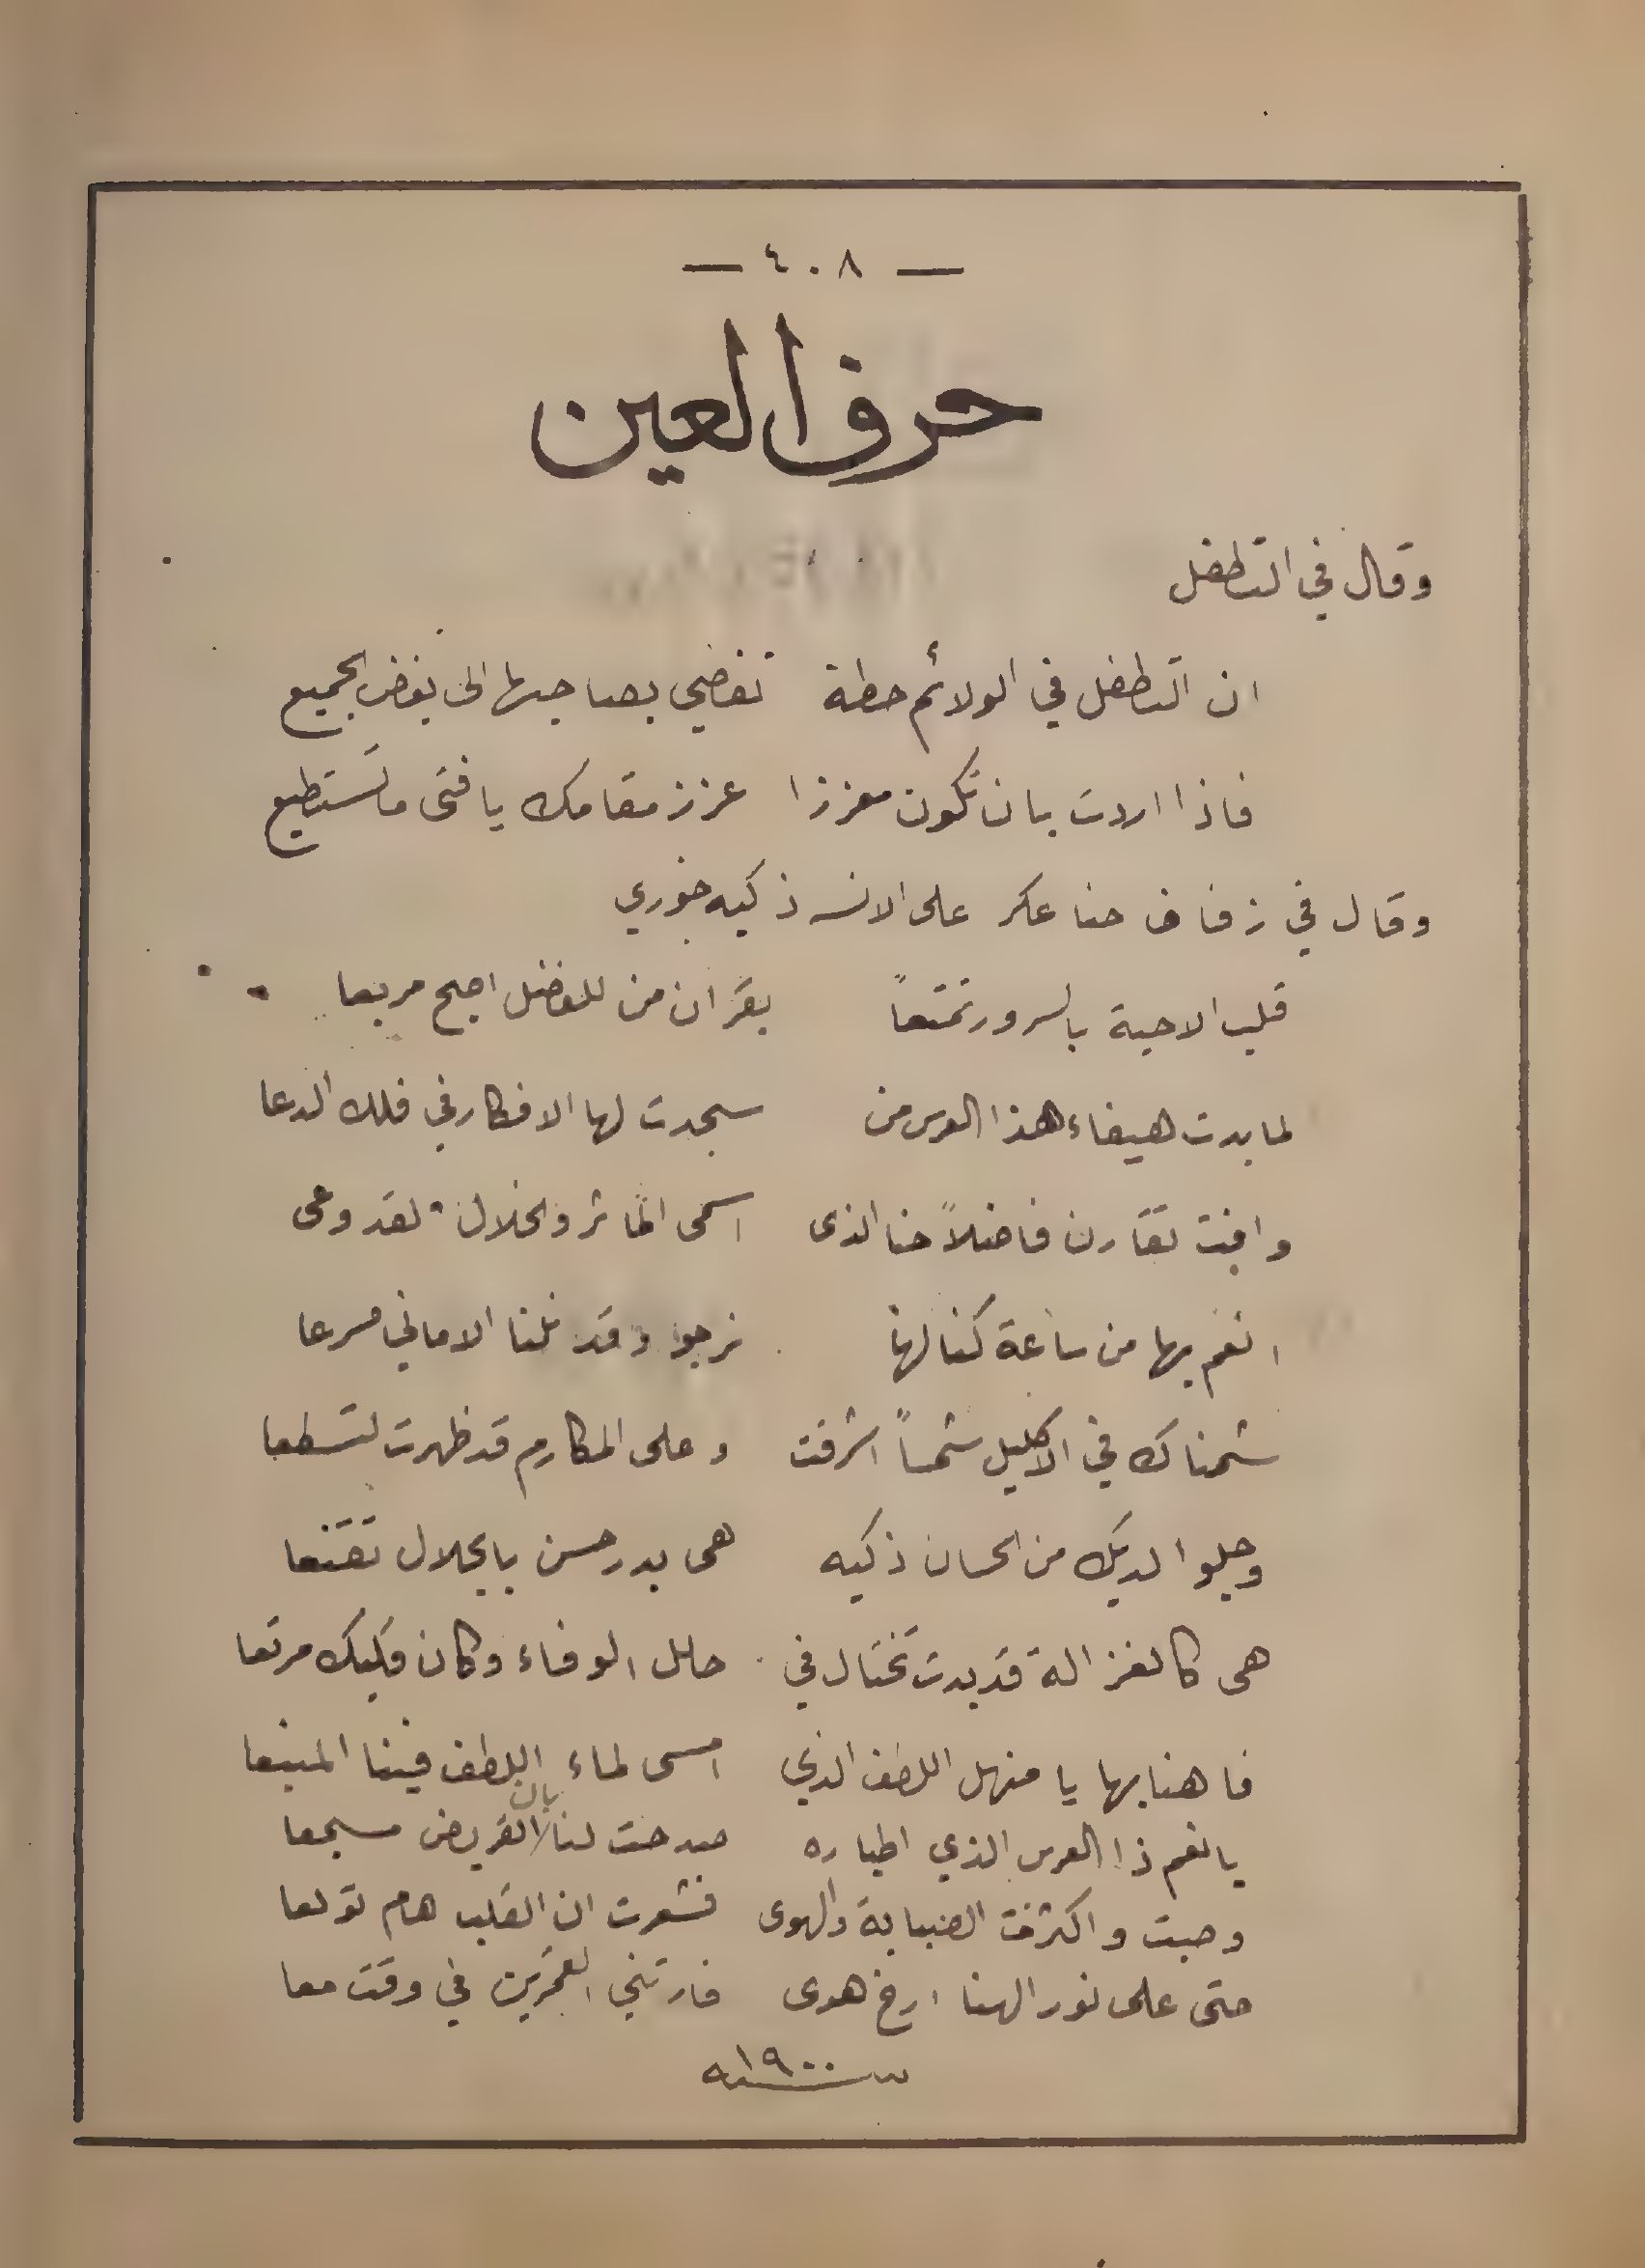 — ٤٠٨ —
حرف العين
وقال في التطفل
ان التطفل في الولائم حطة تفضي بصاحبها الى بغض الجميع
فاذا اردت بان تكون معززا عزز مقامك يا فتى ما تستطيع
وقال في زفاف حنا عكر على الانسه ذكيه خوري
قلب الاحبة بالسرور تمتعاً بقران من للفضل اصبح مربعا
لما بدت هيفاء هذا العرس من سجدت لها الافكار في فلك الدعا
وافت تقارن فاضلاً حنا الذى اسمى المآثر والخلال لقد وعى
انعم بها من ساعة كنا لها نرجو وقد نلنا الاماني مسرعا
شمناك في الاكليل شمساً اشرقت وعلى المكارم قد ظهرت لتسطعا
وجلوا لديك من الحسان ذكيه هى بدر حسن بالجلال تقنعا
هى كالغزالة قد بدت تختال في حلل الوفاء وكان قلبك مرتعا
فاهنا بها يا منهل اللطف الذي امسى لماء اللطف فينا المنبعا
يا نعم ذا العرس الذي اطياره صدحت لنا بان القريض مسجعا
وحبت واكثرت الصبابة والهوى فشعرت ان القلب هام تولعا
حتى على نور الهنا ارخ هوى فارتني القمرين في وقت معا
سنة ١٩٠٠